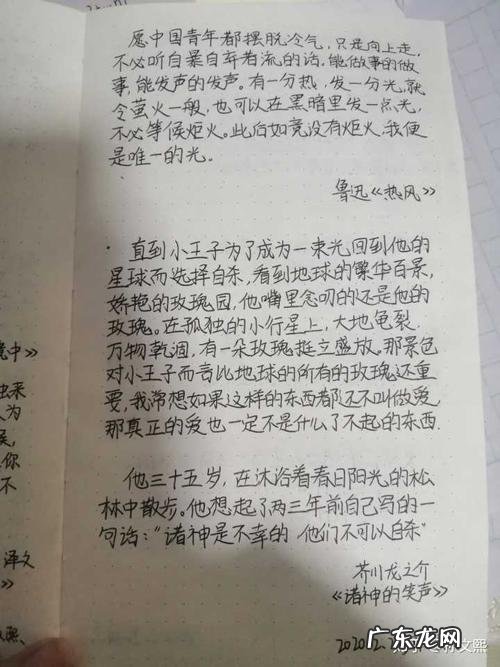 愿中国青年都摆脱冷气，只是向上走，
不必听自暴自弃者流的话，能做事的做
事，能发声的发声。有一分热，发一分光，就
令萤火一般，也可以在黑暗里发一点光，
不必等候炬火。此后如竟没有炬火，我便
是唯一的光。
鲁迅《热风》
· 直到小王子为了成为一束光回到他的
星球而选择自杀，看到地球的繁华百景，
娇艳的玫瑰园，他嘴里念叨的还是他的
玫瑰。在孤独的小行星上，大地龟裂，
万物乾涸，有一朵玫瑰挺立盛放。那景色
对小王子而言比地球的所有的玫瑰还重
要，我常想如果这样的东西都还不叫做爱，
那真正的爱也一定不是什么了不起的东西.
他三十五岁，在沐浴着春日阳光的松
林中散步。他想起了两三年前自己写的一
句话：“诸神是不幸的，他们不可以自杀”
芥川龙之介
《诸神的笑声》
竟中》
人为
你
不
译文
》
熙
2020.2.
文熙
广东龙网